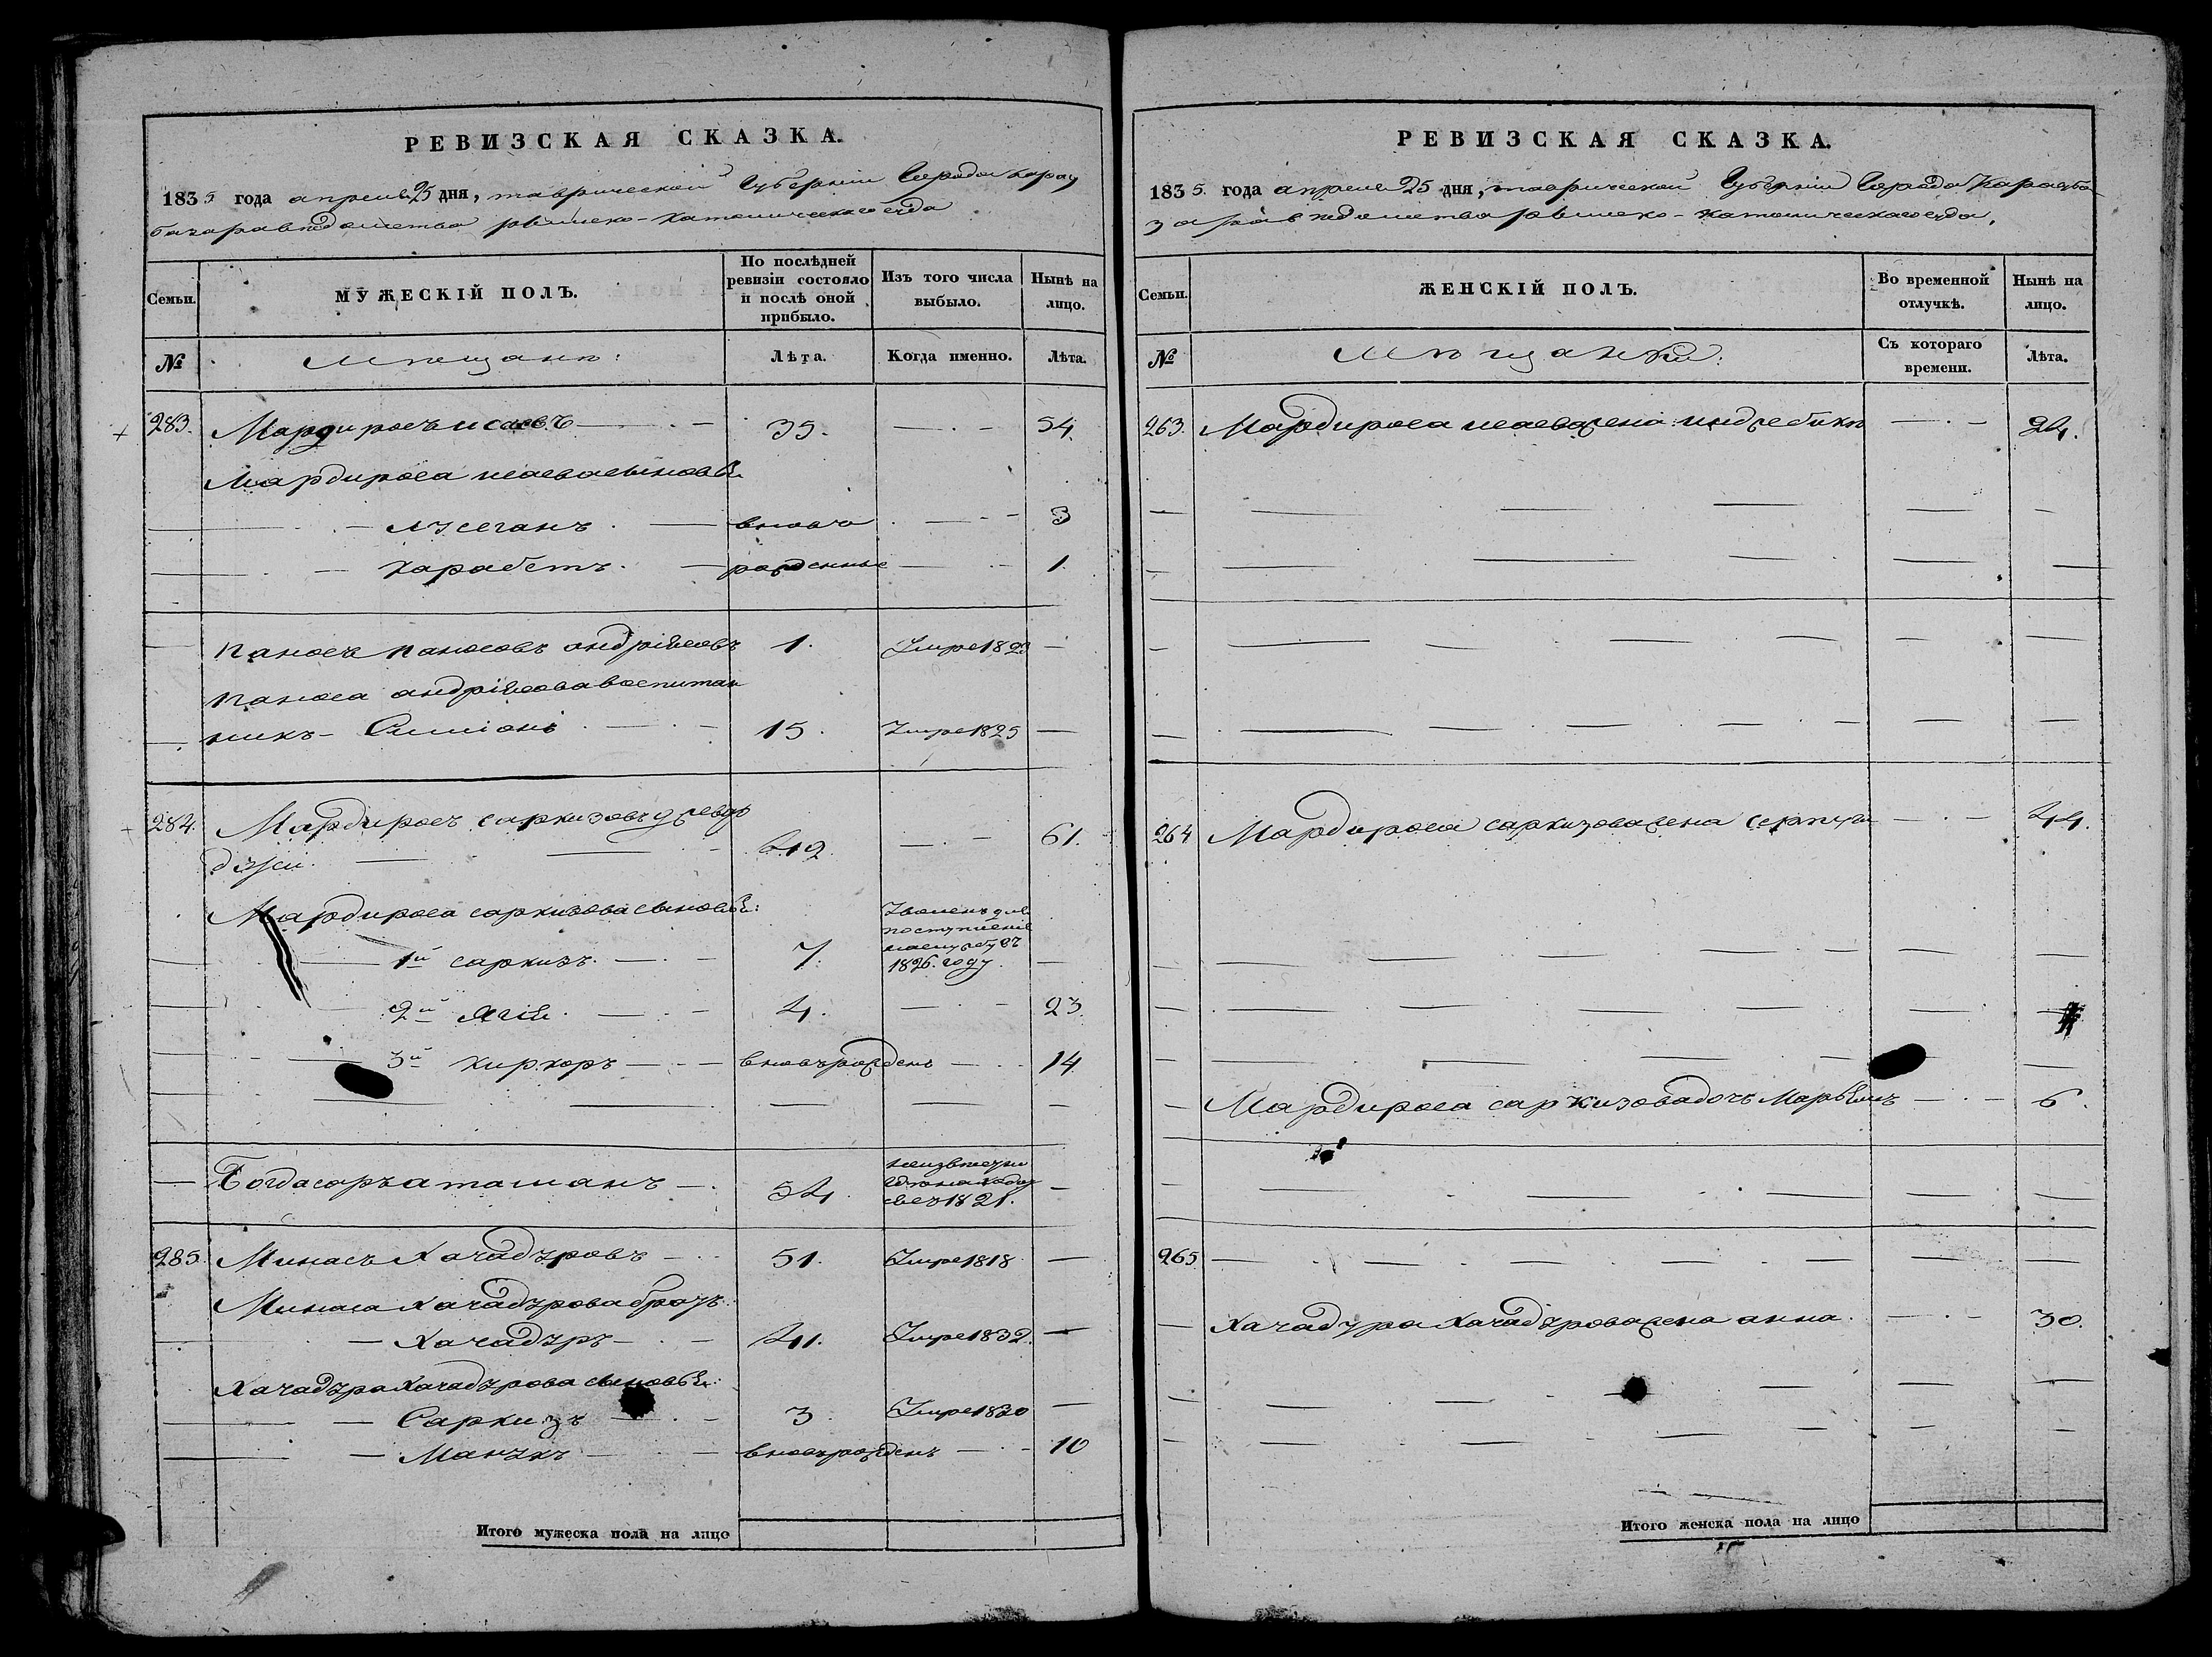 РЕВИЗСКАЯ СКАЗКА.
1835 года апреля 25 дня, таврической Губернiи Города карасу
базара ведомства римско-католическаго суда
Семьи.
МУЖЕСКІЙ ПОЛЪ.
По послѣдней ревизіи состояло и послѣ оной прибыло.
Изъ того числа выбыло.
Нынѣ на лицо.
№
Мещане:
Лѣта.
Когда именно.
Лѣта.
283. Мардиросъ исаевъ 35. 54.
Мардироса исаева сыновья
вновь 3
карабетъ. рожденные 1.
Паносъ Паносовъ 1. Умре 182
Паноса воспитан
никъ Симіонъ 15. Умре 1825
284. Мардиросъ саркизовъ
42. 61.
Мардироса саркизова сыновья:
1й саркизъ. 7. 1826. году.
2й 4. 23.
3й киркоръ вновь рожденъ 14
Богдасаръ 54. 1821.
285. Минасъ Хачадуровъ 51. Умре 1818
Минаса Хачадурова братъ
Хачадуръ 41. Умре 1832.
Хачадура Хачадурова сыновья:
Саркизъ 3. Умре 1830
Манукъ вновь рожденъ 10
Итого мужеска пола на лицо
РЕВИЗСКАЯ СКАЗКА.
1835. года апреля 25 дня, таврической Губернiи Города Карасуба
зара ведомства римско-католическаго суда.
Семьи.
ЖЕНСКІЙ ПОЛЪ.
Во временной отлучкѣ.
Нынѣ на лицо.
№
Мещанки:
Съ котораго времени.
Лѣта.
263. Мардироса исаева жена 24.
264 Мардироса саркизова жена 44.
Мардироса саркизова дочь 6.
265
Хачадура Хачадурова жена анна. 30.
Итого женска пола на лицо